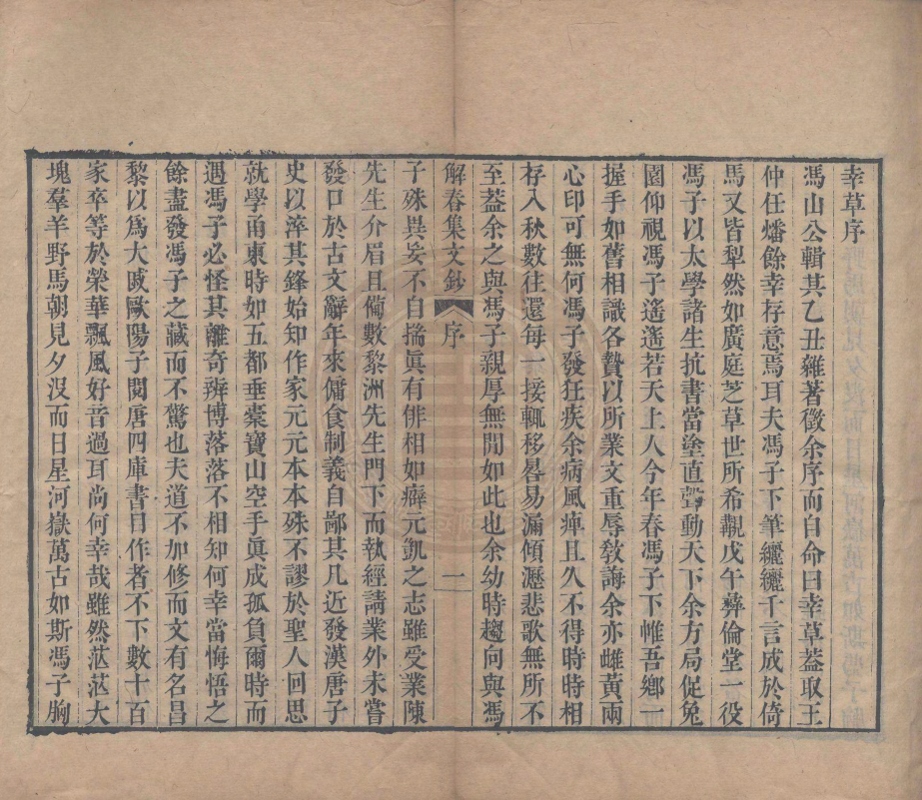 幸草序
馮山公輯其乙丑雜著徵余序而自命曰幸草蓋取王
仲任燔餘幸存意焉耳夫馮子下筆纚纚千言成於倚
馬又皆犁然如廣庭芝草世所希覯戊午彝倫堂一役
馮子以太學諸生抗書當塗直聲動天下余方局促兔
園仰視馮子遙遙若天上人今年春馮子下帷吾鄉一
握手如舊相識各贄以所業文重辱敎誨余亦雌黃兩
心印可無何馮子發狂疾余病風痺且久不得時時相
存入秋數往還每一接輒移晷易漏傾瀝悲歌無所不
至蓋余之與馮子親厚無閒如此也余幼時趨向與馮
解春集文鈔 序 一
子殊異妄不自揣眞有俳相如癖元凱之志雖受業陳
先生介眉且僃數黎洲先生門下而執經請業外未嘗
發口於古文辭年來傭食制義自鄙其凡近發漢唐子
史以淬其鋒始知作家元元本本殊不謬於聖人回思
就學甬東時如五都垂橐寶山空手眞成孤負爾時而
遇馮子必怪其離奇辨博落落不相知何幸當悔悟之
餘盡發馮子之藏而不驚也夫道不加修而文有名昌
黎以爲大戚歐陽子閱唐四庫書目作者不下數十百
家卒等於榮華飄風好音過耳尚何幸哉雖然茫茫大
塊羣羊野馬朝見夕沒而日星河嶽萬古如斯馮子胸